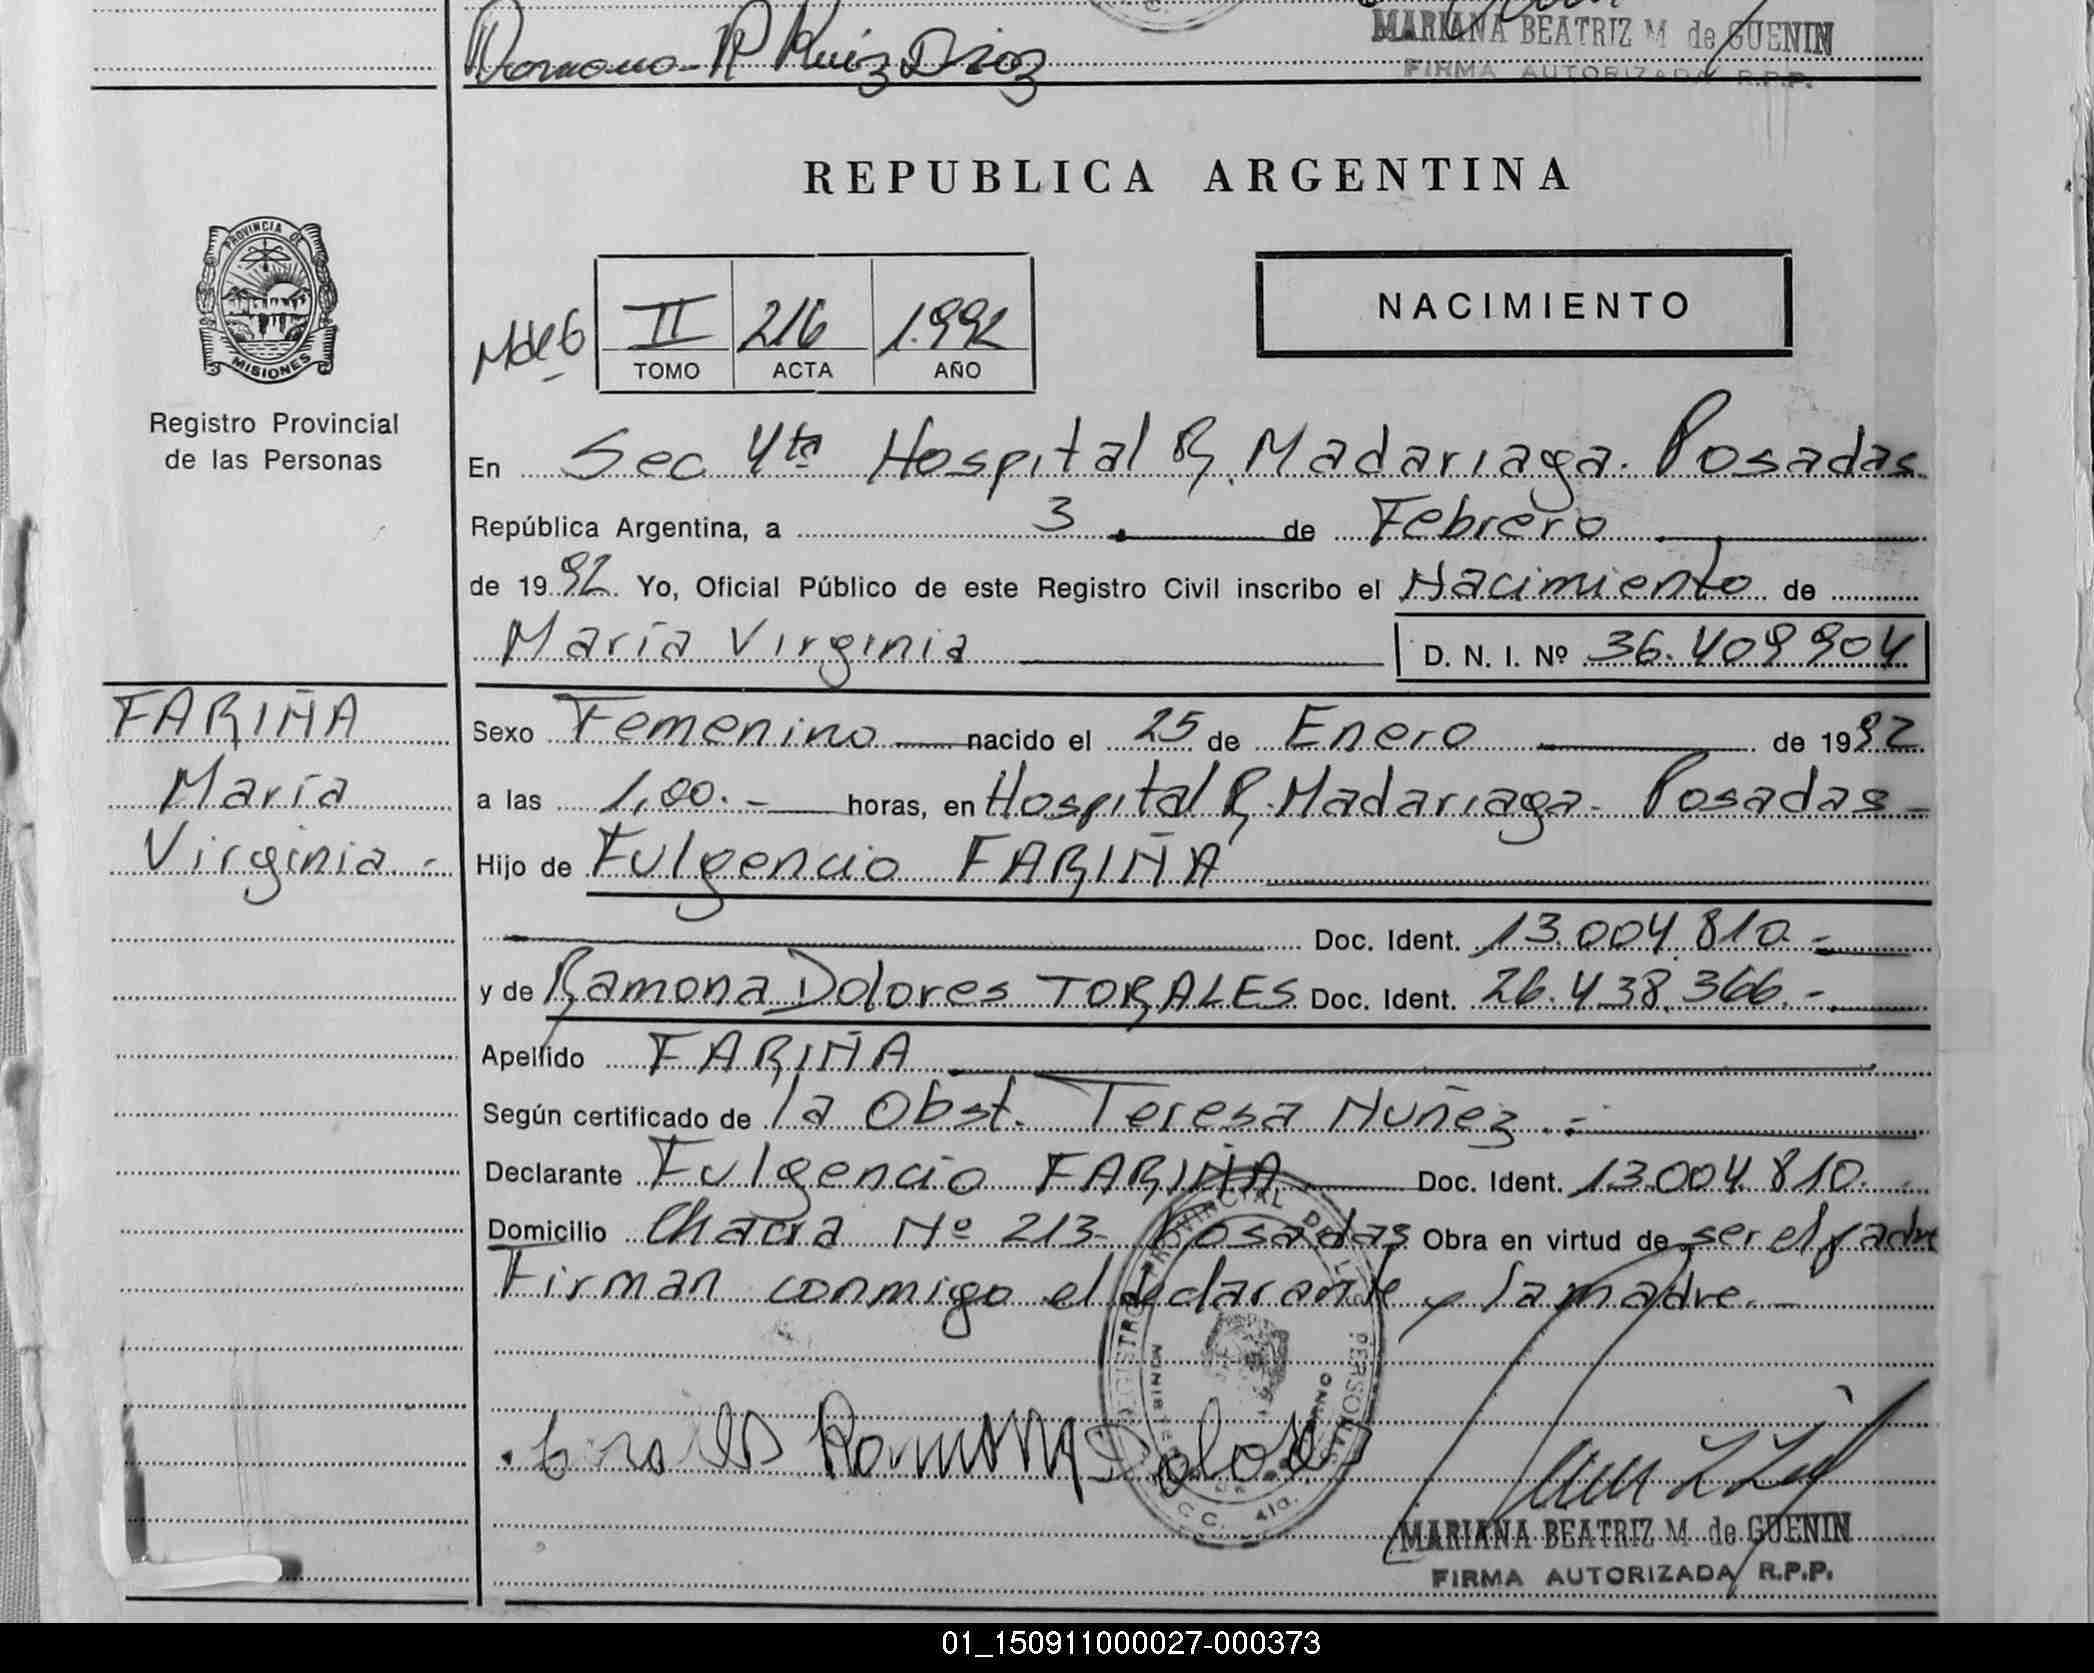 Ramona R Ruiz Diaz
MARIANA BEATRIZ M de GUENIN
FIRMA AUTORIZADA R.P.P.
REPUBLICA ARGENTINA
PROVINCIA DE
MISIONES
Registro Provincial
de las Personas
II 216 1.992
TOMO ACTA AÑO
NACIMIENTO
En Sec 4ta Hospital R. Madariaga. Posadas.
República Argentina, a 3 de Febrero
de 1992. Yo, Oficial Público de este Registro Civil inscribo el Nacimiento de
María Virginia D. N. I. Nº 36.409904
FARIÑA
María
Virginia.-
Sexo Femenino nacido el 25 de Enero de 1992
a las 1,00.- horas, en Hospital R. Madariaga. Posadas-
Hijo de Fulgencio FARIÑA
Doc. Ident. 13.004.810.-
y de Ramona Dolores TORALES Doc. Ident. 26.438.366.-
Apellido FARIÑA
Según certificado de la Obst. Teresa Nuñez.-
Declarante Fulgencio FARIÑA Doc. Ident. 13.004.810.
Domicilio Chacra Nº 213- Posadas Obra en virtud de ser el padre
Firman conmigo el declarante y la madre.-
PROVINCIAL DE LAS PERSONAS
Ramona
MARIANA BEATRIZ M. de GUENIN
FIRMA AUTORIZADA R.P.P.
01_150911000027-000373